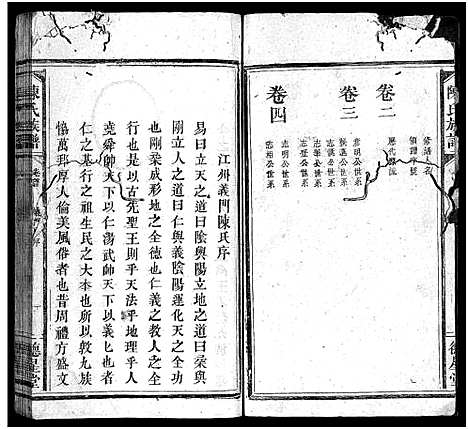 陳氏族譜
卷二
歷代
卷三
志明公世系
卷四
志明公世系
志相公世系
德星堂
江州義門陳氏序
易曰立天之道曰陰與陽立地之道曰柔與
剛立人之道曰仁與義陰陽運化天之全功
也剛柔成形地之全德也仁義之教人之全
行也是以古先聖王則乎天法乎地理乎人
堯舜帥天下以仁湯武帥天下以義義者
仁之基行之祖生民之大本也所以敦九族
協萬邦厚人倫美風俗者也昔周禮方盛文
陳氏族譜
德星堂